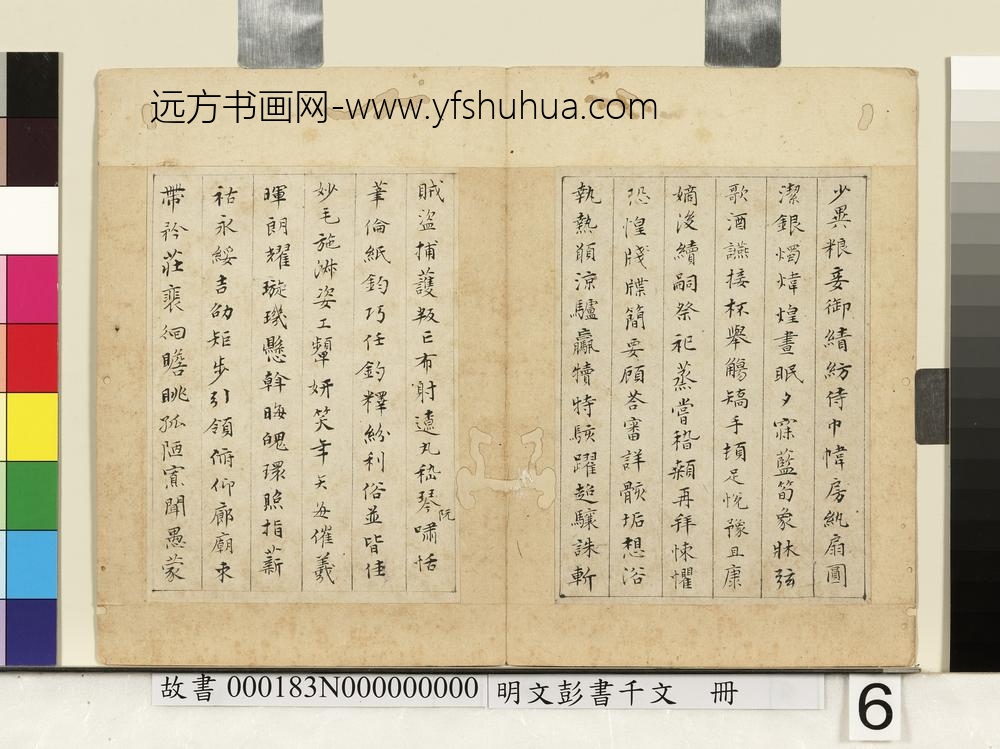 远方书画网-www.yfshuhua.com
少異粮妾御績紡侍巾幃房紈扇圓
潔銀燭煒煌晝眠夕寐藍筍象牀弦
歌酒讌接杯舉觴矯手頓足悅豫且康
嫡後續嗣祭祀蒸嘗稽顙再拜悚懼
恐惶牋牒簡要顧荅審詳骸垢想浴
執熱願涼驢驘犢特駭躍超驤誅斬
賊盜捕護叛亡布射遼丸嵇琴阮嘯恬
筆倫紙鈞巧任釣釋紛利俗並皆佳
妙毛施淑姿工顰妍笑年矢每催羲
暉朗耀璇璣懸斡晦魄環照指薪
祜永綏吉劭矩步引領俯仰廊廟束
帶矜莊裴徊瞻眺孤陋寡聞愚蒙
故書 000183N000000000 明文彭書千文 冊
6